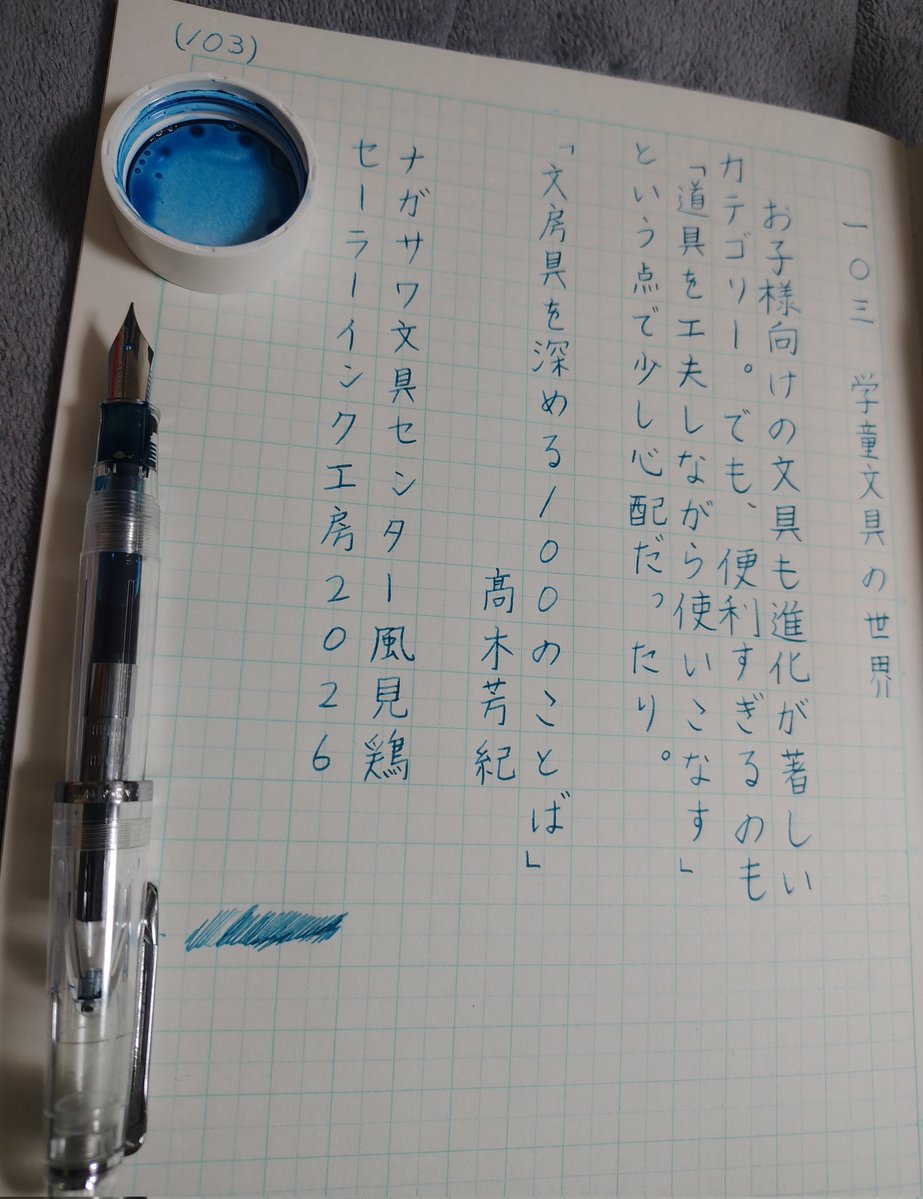 (103)
一〇三　学童文具の世界
お子様向けの文具も進化が著しい
カテゴリー。でも、便利すぎるのも
「道具を工夫しながら使いこなす」
という点で少し心配だったり。
「文房具を深める100のことば」
髙木芳紀
ナガサワ文具センター風見鶏
セーラーインク工房2026